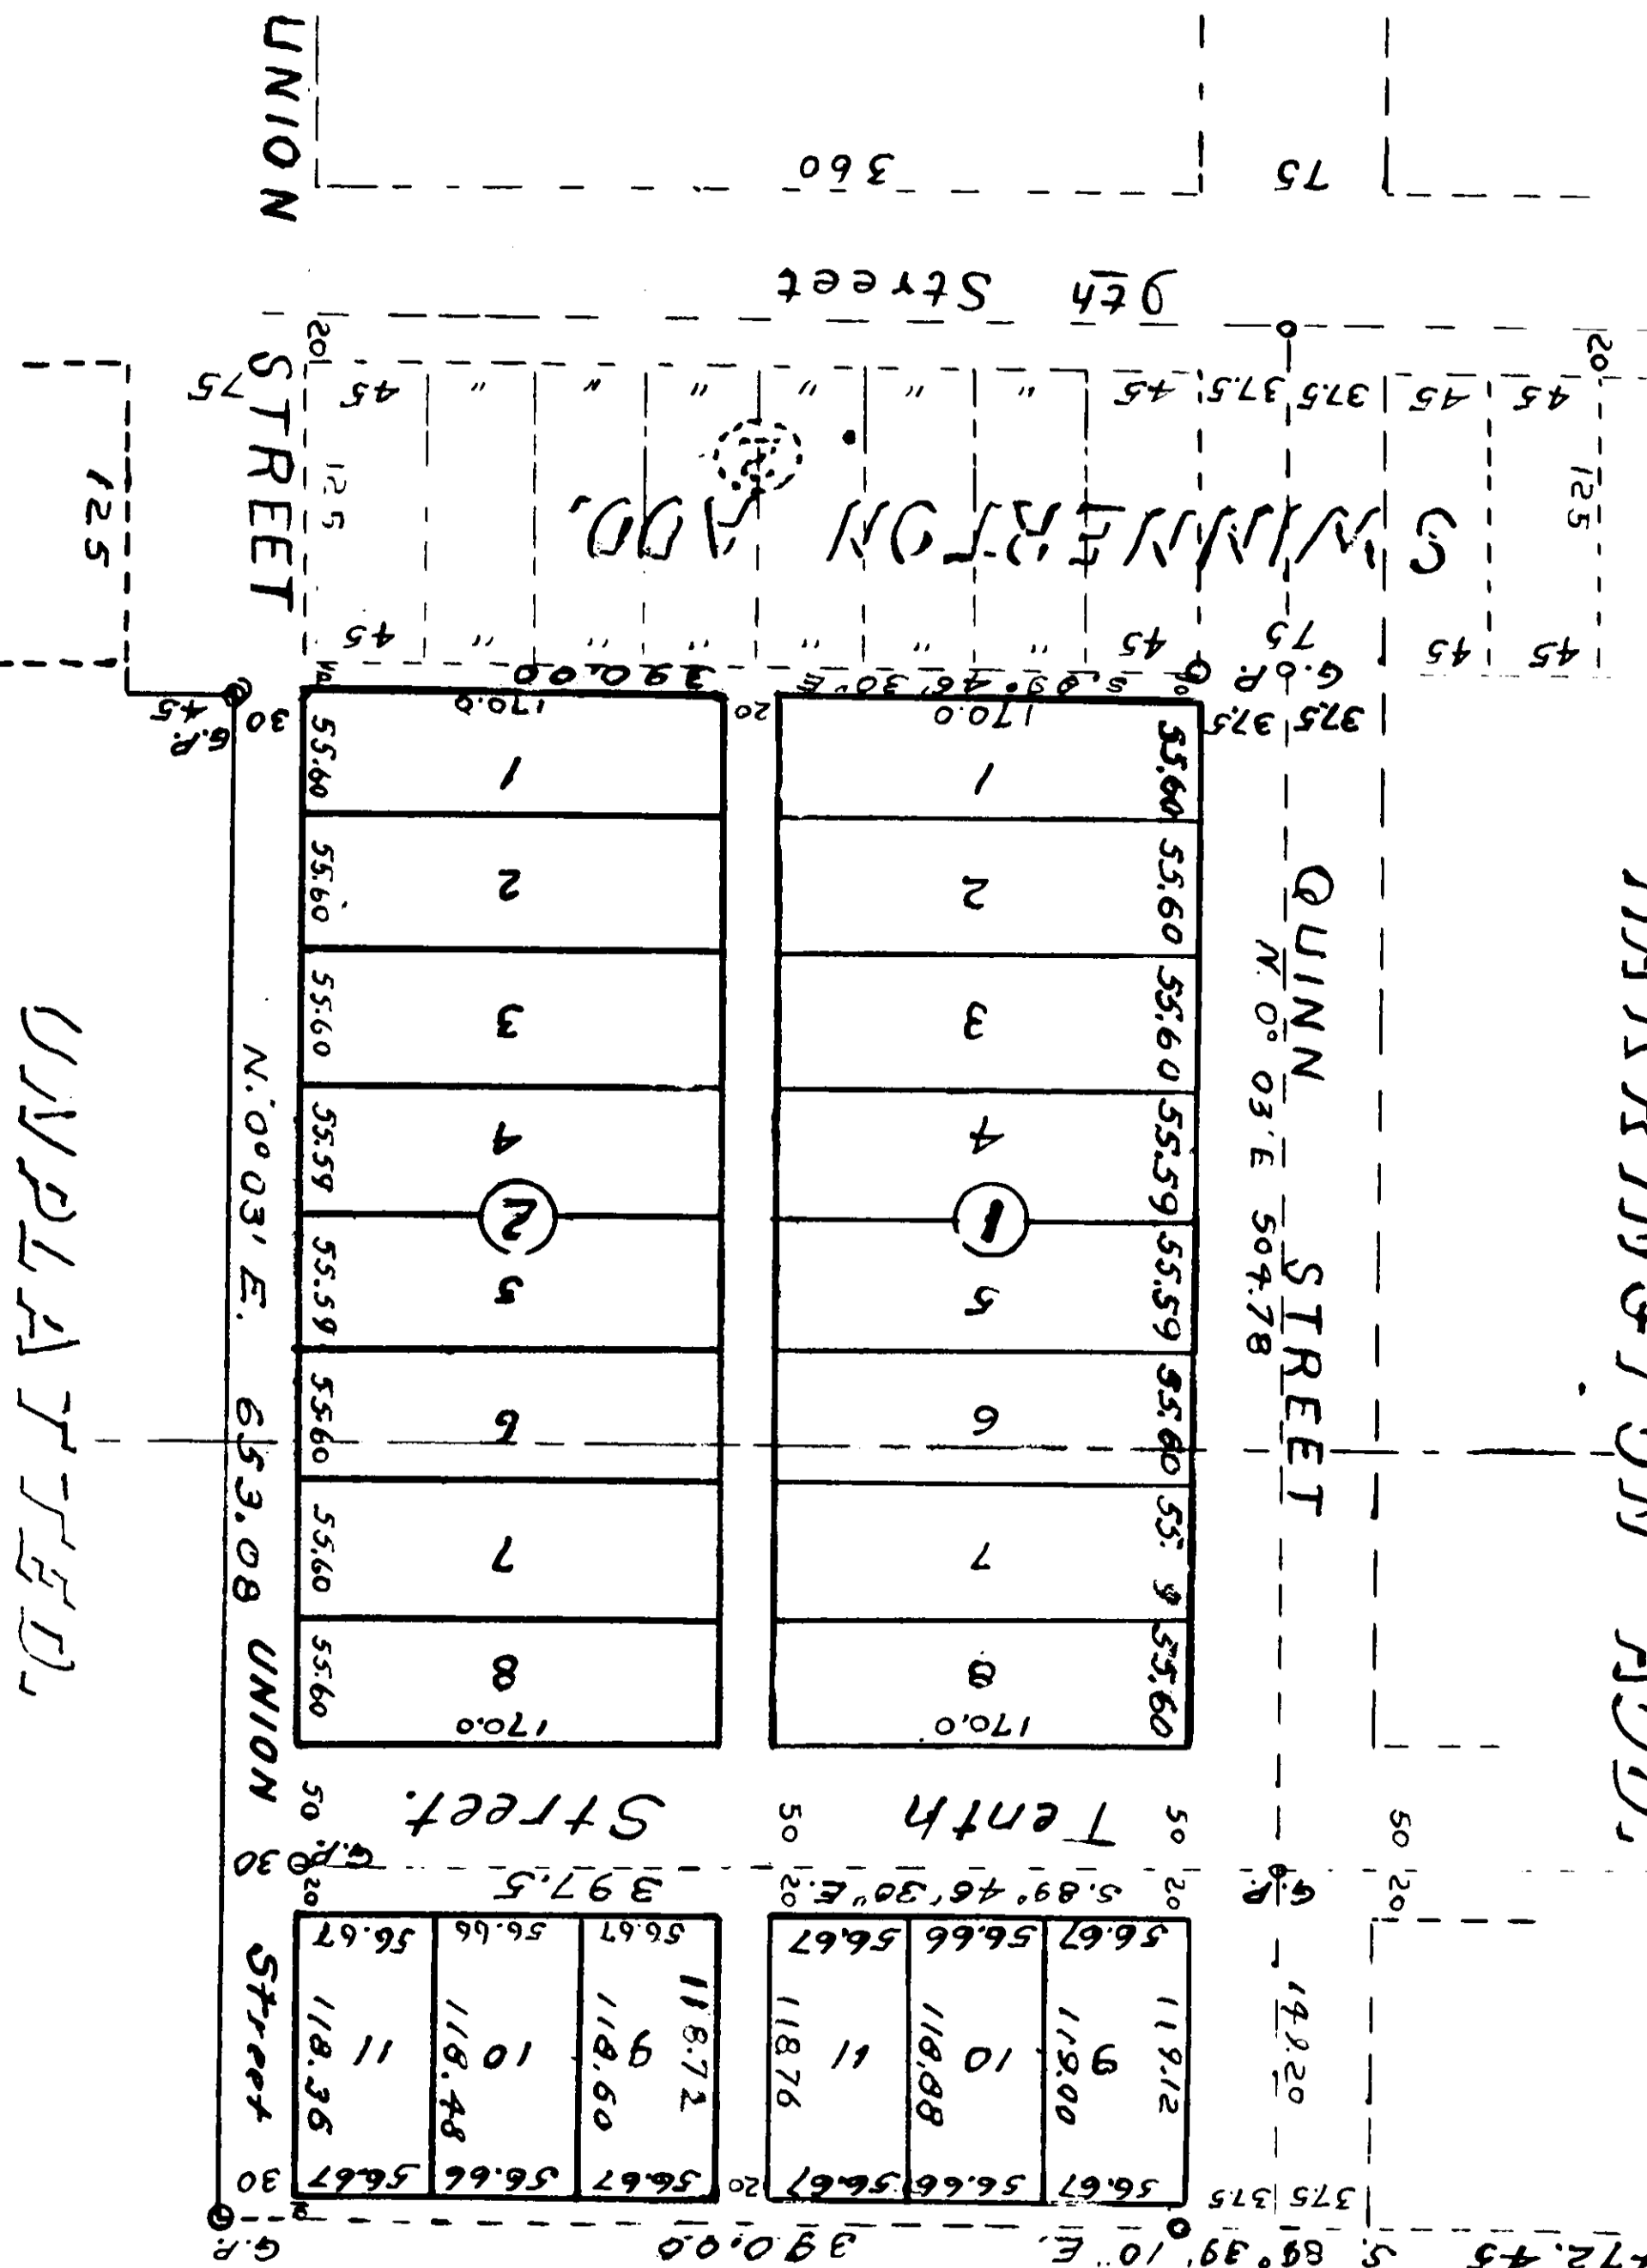 UNION
360
75
9th Street
STREET
75
20
20
45 " " " " " " 45 37.5 37.5 45 45
125
125
125
SWINNERTON ADD.
45 " " " " " " 45 75 45 45
G.P.
390.00 S. 89° 46' 30" E
G.P. 45
30
170.0
20
170.0
37.5 37.5
55.60 1
1 55.60
55.60 2
2 55.60
55.60 3
3 55.60
55.59 4
4 55.59
2
1
55.59 5
5 55.59
55.60 6
6 55.60
55.60 7
7
55.60 8
8 55.60
170.0
170.0
QUINN STREET
N. 0° 03' E 504.78
UNPLATTED.
N. 0° 03' E. 653.08
UNION Street
Tenth Street.
50 50 50 50
30 G.P.
G.P.
397.5 S. 89° 46' 30" E.
20 20 20 20
56.67 56.66 56.67
56.67 56.66 56.67
118.36 11 118.48 10 118.60 9 118.72
118.76 11 118.88 10 119.00 9 119.12
149.20
30 56.67 56.66 56.67 20 56.67 56.66 56.67 37.5 37.5
G.P.
390.00 S. 89° 39' 10" E.
72.45
ADD.